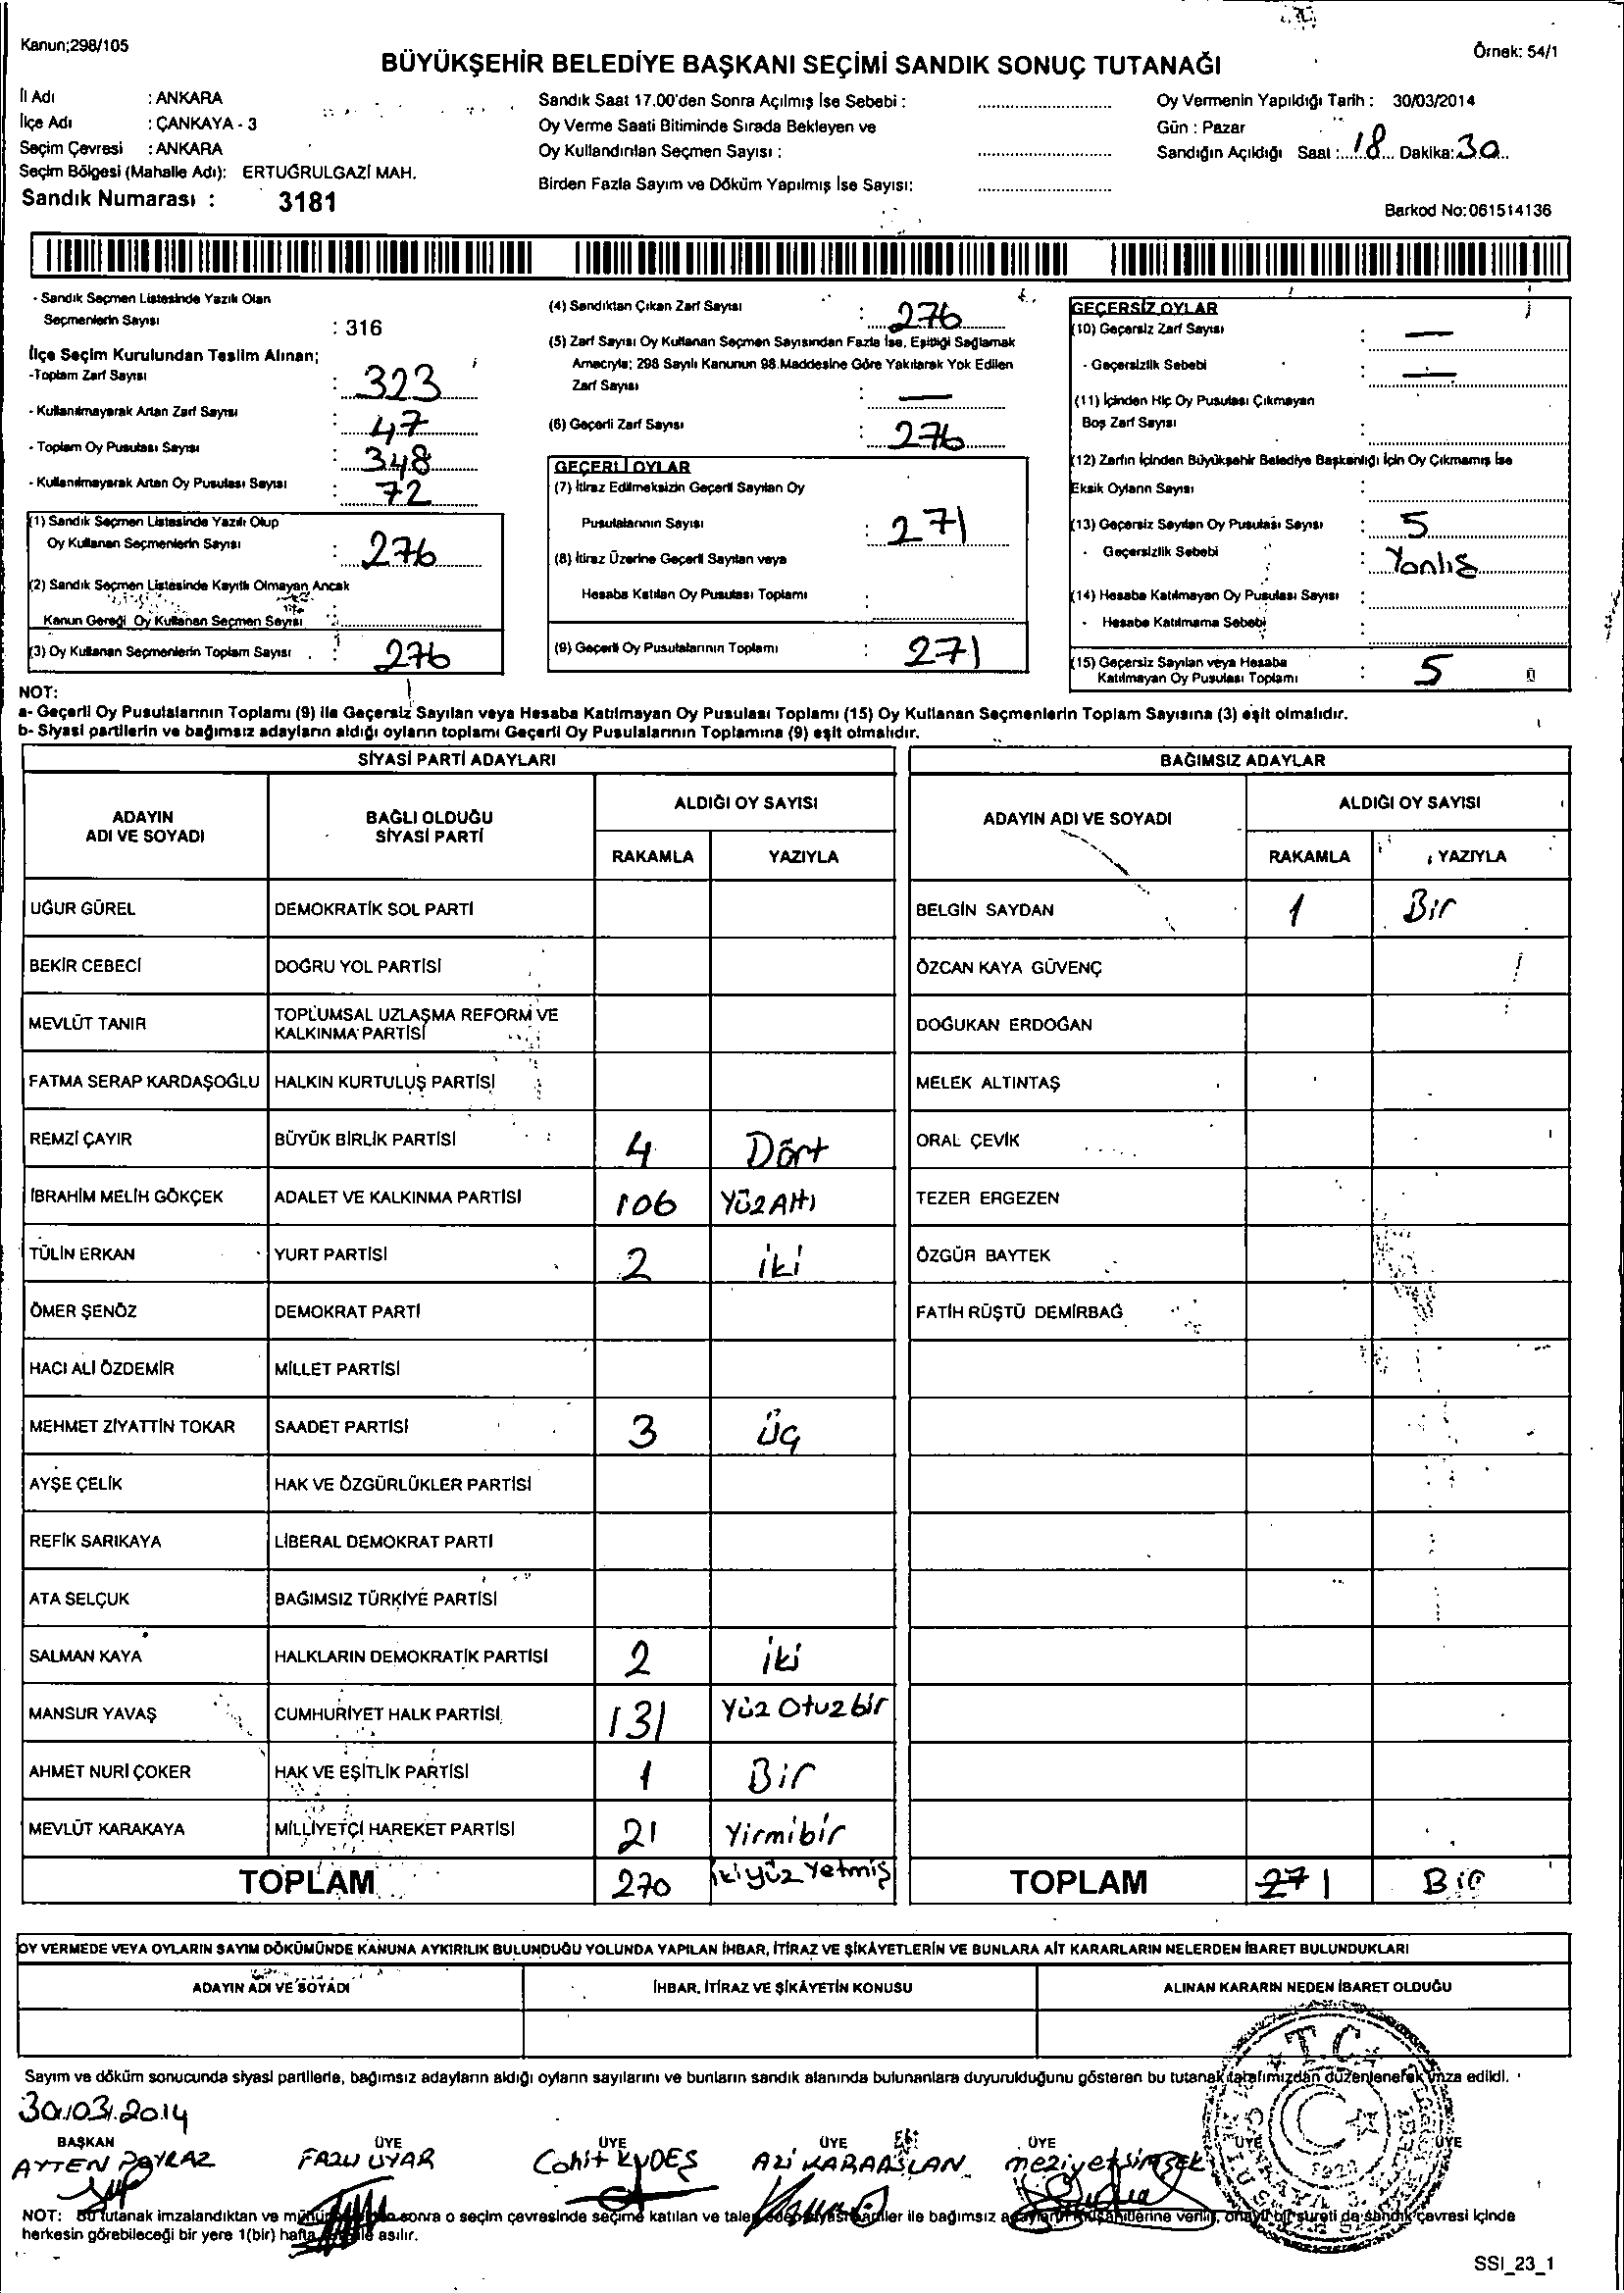 Kanun;298/105
Örnek: 54/1
BÜYÜKŞEHİR BELEDİYE BAŞKANI SEÇİMİ SANDIK SONUÇ TUTANAĞI
İl Adı : ANKARA
İlçe Adı : ÇANKAYA - 3
Seçim Çevresi : ANKARA
Seçim Bölgesi (Mahalle Adı): ERTUĞRULGAZİ MAH.
Sandık Numarası : 3181
Sandık Saat 17.00'den Sonra Açılmış İse Sebebi :
Oy Verme Saati Bitiminde Sırada Bekleyen ve
Oy Kullandırılan Seçmen Sayısı :
Birden Fazla Sayım ve Döküm Yapılmış İse Sayısı:
Oy Vermenin Yapıldığı Tarih : 30/03/2014
Gün : Pazar
Sandığın Açıldığı Saat : 18 Dakika: 30
Barkod No:061514136
- Sandık Seçmen Listesinde Yazılı Olan
Seçmenlerin Sayısı : 316
İlçe Seçim Kurulundan Teslim Alınan;
-Toplam Zarf Sayısı : 323
- Kullanılmayarak Artan Zarf Sayısı : 47
- Toplam Oy Pusulası Sayısı : 348
- Kullanılmayarak Artan Oy Pusulası Sayısı : 72
(1) Sandık Seçmen Listesinde Yazılı Olup
Oy Kullanan Seçmenlerin Sayısı : 276
(2) Sandık Seçmen Listesinde Kayıtlı Olmayan Ancak
Kanun Gereği Oy Kullanan Seçmen Sayısı :
(3) Oy Kullanan Seçmenlerin Toplam Sayısı : 276
(4) Sandıktan Çıkan Zarf Sayısı : 276
(5) Zarf Sayısı Oy Kullanan Seçmen Sayısından Fazla İse, Eşitliği Sağlamak
Amacıyla; 298 Sayılı Kanunun 98.Maddesine Göre Yakılarak Yok Edilen
Zarf Sayısı : —
(6) Geçerli Zarf Sayısı : 276
GEÇERLİ OYLAR
(7) İtiraz Edilmeksizin Geçerli Sayılan Oy
Pusulalarının Sayısı : 271
(8) İtiraz Üzerine Geçerli Sayılan veya
Hesaba Katılan Oy Pusulası Toplamı :
(9) Geçerli Oy Pusulalarının Toplamı : 271
GEÇERSİZ OYLAR
(10) Geçersiz Zarf Sayısı : —
- Geçersizlik Sebebi : —
(11) İçinden Hiç Oy Pusulası Çıkmayan
Boş Zarf Sayısı :
(12) Zarfın İçinden Büyükşehir Belediye Başkanlığı İçin Oy Çıkmamış İse
Eksik Oyların Sayısı :
(13) Geçersiz Sayılan Oy Pusulası Sayısı : 5
- Geçersizlik Sebebi : Yanlış
(14) Hesaba Katılmayan Oy Pusulası Sayısı :
- Hesaba Katılmama Sebebi :
(15) Geçersiz Sayılan veya Hesaba
Katılmayan Oy Pusulası Toplamı : 5
NOT:
a- Geçerli Oy Pusulalarının Toplamı (9) ile Geçersiz Sayılan veya Hesaba Katılmayan Oy Pusulası Toplamı (15) Oy Kullanan Seçmenlerin Toplam Sayısına (3) eşit olmalıdır.
b- Siyasi partilerin ve bağımsız adayların aldığı oyların toplamı Geçerli Oy Pusulalarının Toplamına (9) eşit olmalıdır.
SİYASİ PARTİ ADAYLARI
ADAYIN ADI VE SOYADI
BAĞLI OLDUĞU SİYASİ PARTİ
ALDIĞI OY SAYISI
RAKAMLA YAZIYLA
UĞUR GÜREL DEMOKRATİK SOL PARTİ
BEKİR CEBECİ DOĞRU YOL PARTİSİ
MEVLÜT TANIR TOPLUMSAL UZLAŞMA REFORM VE
KALKINMA PARTİSİ
FATMA SERAP KARDAŞOĞLU HALKIN KURTULUŞ PARTİSİ
REMZİ ÇAYIR BÜYÜK BİRLİK PARTİSİ 4 Dört
İBRAHİM MELİH GÖKÇEK ADALET VE KALKINMA PARTİSİ 106 YüzAltı
TÜLİN ERKAN YURT PARTİSİ 2 iki
ÖMER ŞENÖZ DEMOKRAT PARTİ
HACI ALİ ÖZDEMİR MİLLET PARTİSİ
MEHMET ZİYATTİN TOKAR SAADET PARTİSİ 3 Üç
AYŞE ÇELİK HAK VE ÖZGÜRLÜKLER PARTİSİ
REFİK SARIKAYA LİBERAL DEMOKRAT PARTİ
ATA SELÇUK BAĞIMSIZ TÜRKİYE PARTİSİ
SALMAN KAYA HALKLARIN DEMOKRATİK PARTİSİ 2 iki
MANSUR YAVAŞ CUMHURİYET HALK PARTİSİ 131 Yüz Otuzbir
AHMET NURİ ÇOKER HAK VE EŞİTLİK PARTİSİ 1 Bir
MEVLÜT KARAKAYA MİLLİYETÇİ HAREKET PARTİSİ 21 Yirmibir
TOPLAM 270 ikiyüz Yetmiş
BAĞIMSIZ ADAYLAR
ADAYIN ADI VE SOYADI
ALDIĞI OY SAYISI
RAKAMLA YAZIYLA
BELGİN SAYDAN 1 Bir
ÖZCAN KAYA GÜVENÇ
DOĞUKAN ERDOĞAN
MELEK ALTINTAŞ
ORAL ÇEVİK
TEZER ERGEZEN
ÖZGÜR BAYTEK
FATİH RÜŞTÜ DEMİRBAĞ
TOPLAM 271 Bir
OY VERMEDE VEYA OYLARIN SAYIM DÖKÜMÜNDE KANUNA AYKIRILIK BULUNDUĞU YOLUNDA YAPILAN İHBAR, İTİRAZ VE ŞİKÂYETLERİN VE BUNLARA AİT KARARLARIN NELERDEN İBARET BULUNDUKLARI
ADAYIN ADI VE SOYADI İHBAR, İTİRAZ VE ŞİKÂYETİN KONUSU ALINAN KARARIN NEDEN İBARET OLDUĞU
Sayım ve döküm sonucunda siyasi partilerle, bağımsız adayların aldığı oyların sayılarını ve bunların sandık alanında bulunanlara duyurulduğunu gösteren bu tutanak tarafımızdan düzenlenerek imza edildi.
30.03.2014
T.C.
BAŞKAN ÜYE ÜYE ÜYE ÜYE ÜYE ÜYE
AYTEN POYRAZ Cahit ALİ KARAASLAN meziyet şimşek
NOT: Bu tutanak imzalandıktan ve sonra o seçim çevresinde seçime katılan ve talep eden siyasi partiler ile bağımsız verilir, onaylı bir sureti de sandık çevresi içinde
herkesin görebileceği bir yere 1(bir) hafta asılır.
SSI_23_1